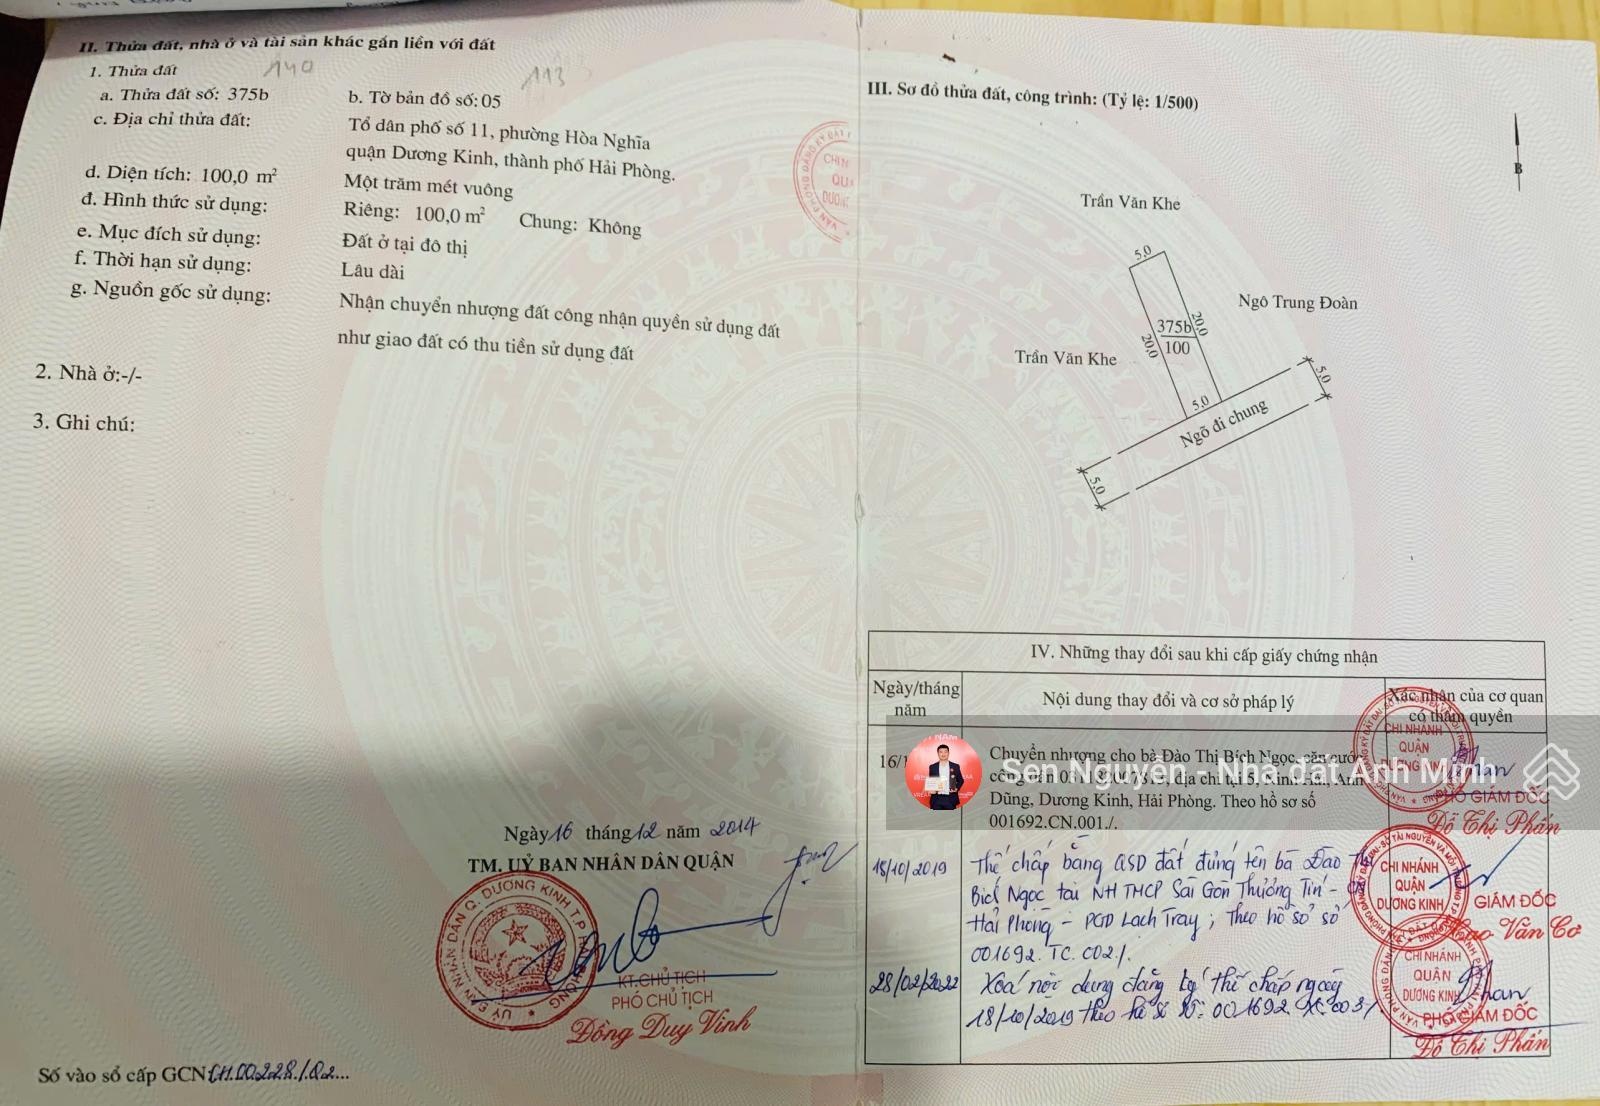 II. Thửa đất, nhà ở và tài sản khác gắn liền với đất
1. Thửa đất
140
113
a. Thửa đất số: 375b
b. Tờ bản đồ số: 05
c. Địa chỉ thửa đất:
Tổ dân phố số 11, phường Hòa Nghĩa
quận Dương Kinh, thành phố Hải Phòng.
d. Diện tích: 100,0 m²
Một trăm mét vuông
đ. Hình thức sử dụng:
Riêng: 100,0 m² Chung: Không
e. Mục đích sử dụng:
Đất ở tại đô thị
f. Thời hạn sử dụng:
Lâu dài
g. Nguồn gốc sử dụng:
Nhận chuyển nhượng đất công nhận quyền sử dụng đất
như giao đất có thu tiền sử dụng đất
2. Nhà ở:-/-
3. Ghi chú:
Ngày 16 tháng 12 năm 2014
TM. UỶ BAN NHÂN DÂN QUẬN
ỦY BAN NHÂN DÂN Q. DƯƠNG KINH T.P HẢI PHÒNG
KT.CHỦ TỊCH
PHÓ CHỦ TỊCH
Đồng Duy Vinh
Số vào sổ cấp GCN CH.00228/.Q2...
III. Sơ đồ thửa đất, công trình: (Tỷ lệ: 1/500)
VĂN PHÒNG ĐĂNG KÝ ĐẤT
CHI N
QU
DƯƠNG
B
Trần Văn Khe
5,0
Ngô Trung Đoàn
20,0
375b
100
20,0
Trần Văn Khe
5,0
5,0
Ngõ đi chung
5,0
IV. Những thay đổi sau khi cấp giấy chứng nhận
Ngày/tháng
năm
Nội dung thay đổi và cơ sở pháp lý
Xác nhận của cơ quan
có thẩm quyền
16/1
Chuyển nhượng cho bà Đào Thị Bích Ngọc, căn cước
công dân
địa chỉ tại
Dũng, Dương Kinh, Hải Phòng. Theo hồ sơ số
001692.CN.001./.
Sen Nguyễn - Nhà đất Anh Minh
CHI NHÁNH
QUẬN
DƯƠNG KINH
PHÓ GIÁM ĐỐC
Đỗ Thị Phấn
18/10/2019
Thế chấp bằng QSD đất đứng tên bà Đào Thị
Bích Ngọc tại NH TMCP Sài Gòn Thương Tín - CN
Hải Phòng - PGD Lạch Tray; Theo hồ sơ số
001692.TC.002/.
CHI NHÁNH
QUẬN
DƯƠNG KINH
GIÁM ĐỐC
Cao Văn Cơ
28/02/2022
Xoá nội dung đăng ký thế chấp ngày
18/10/2019 theo hồ sơ số: 001692.XC.003/.
CHI NHÁNH
QUẬN
DƯƠNG KINH
PHÓ GIÁM ĐỐC
Đỗ Thị Phấn